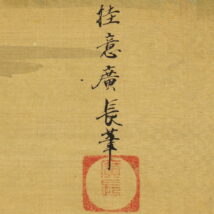 桂意廣長筆